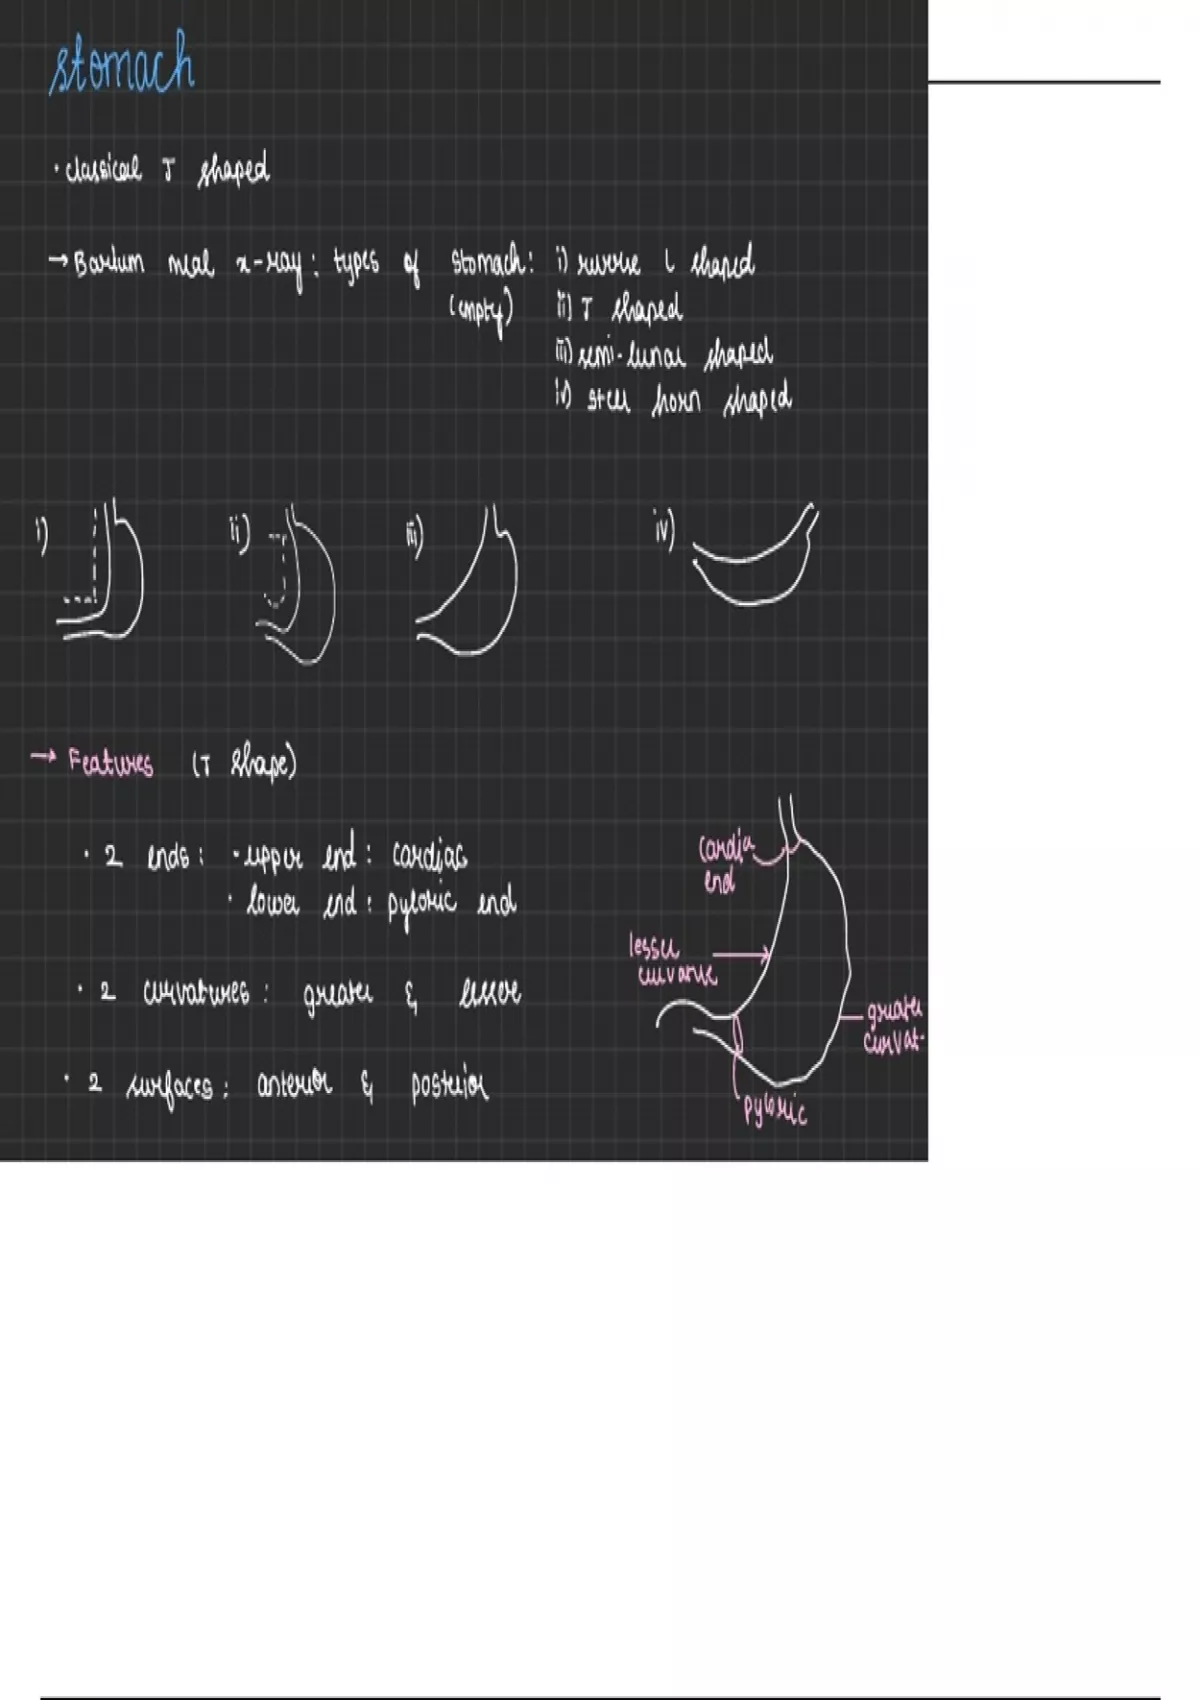 stomach
· classical J shaped
→ Barium meal x-ray: types of stomach: i) reverse L shaped
(empty) ii) J shaped
iii) semi-lunar shaped
iv) steer horn shaped
i) ii) iii) iv)
→ Features (J shape)
· 2 ends: · upper end: cardiac
· lower end: pyloric end
· 2 curvatures: greater & lesser
· 2 surfaces: anterior & posterior
cardia
end
lesser
curvature
greater
curvat-
pyloric